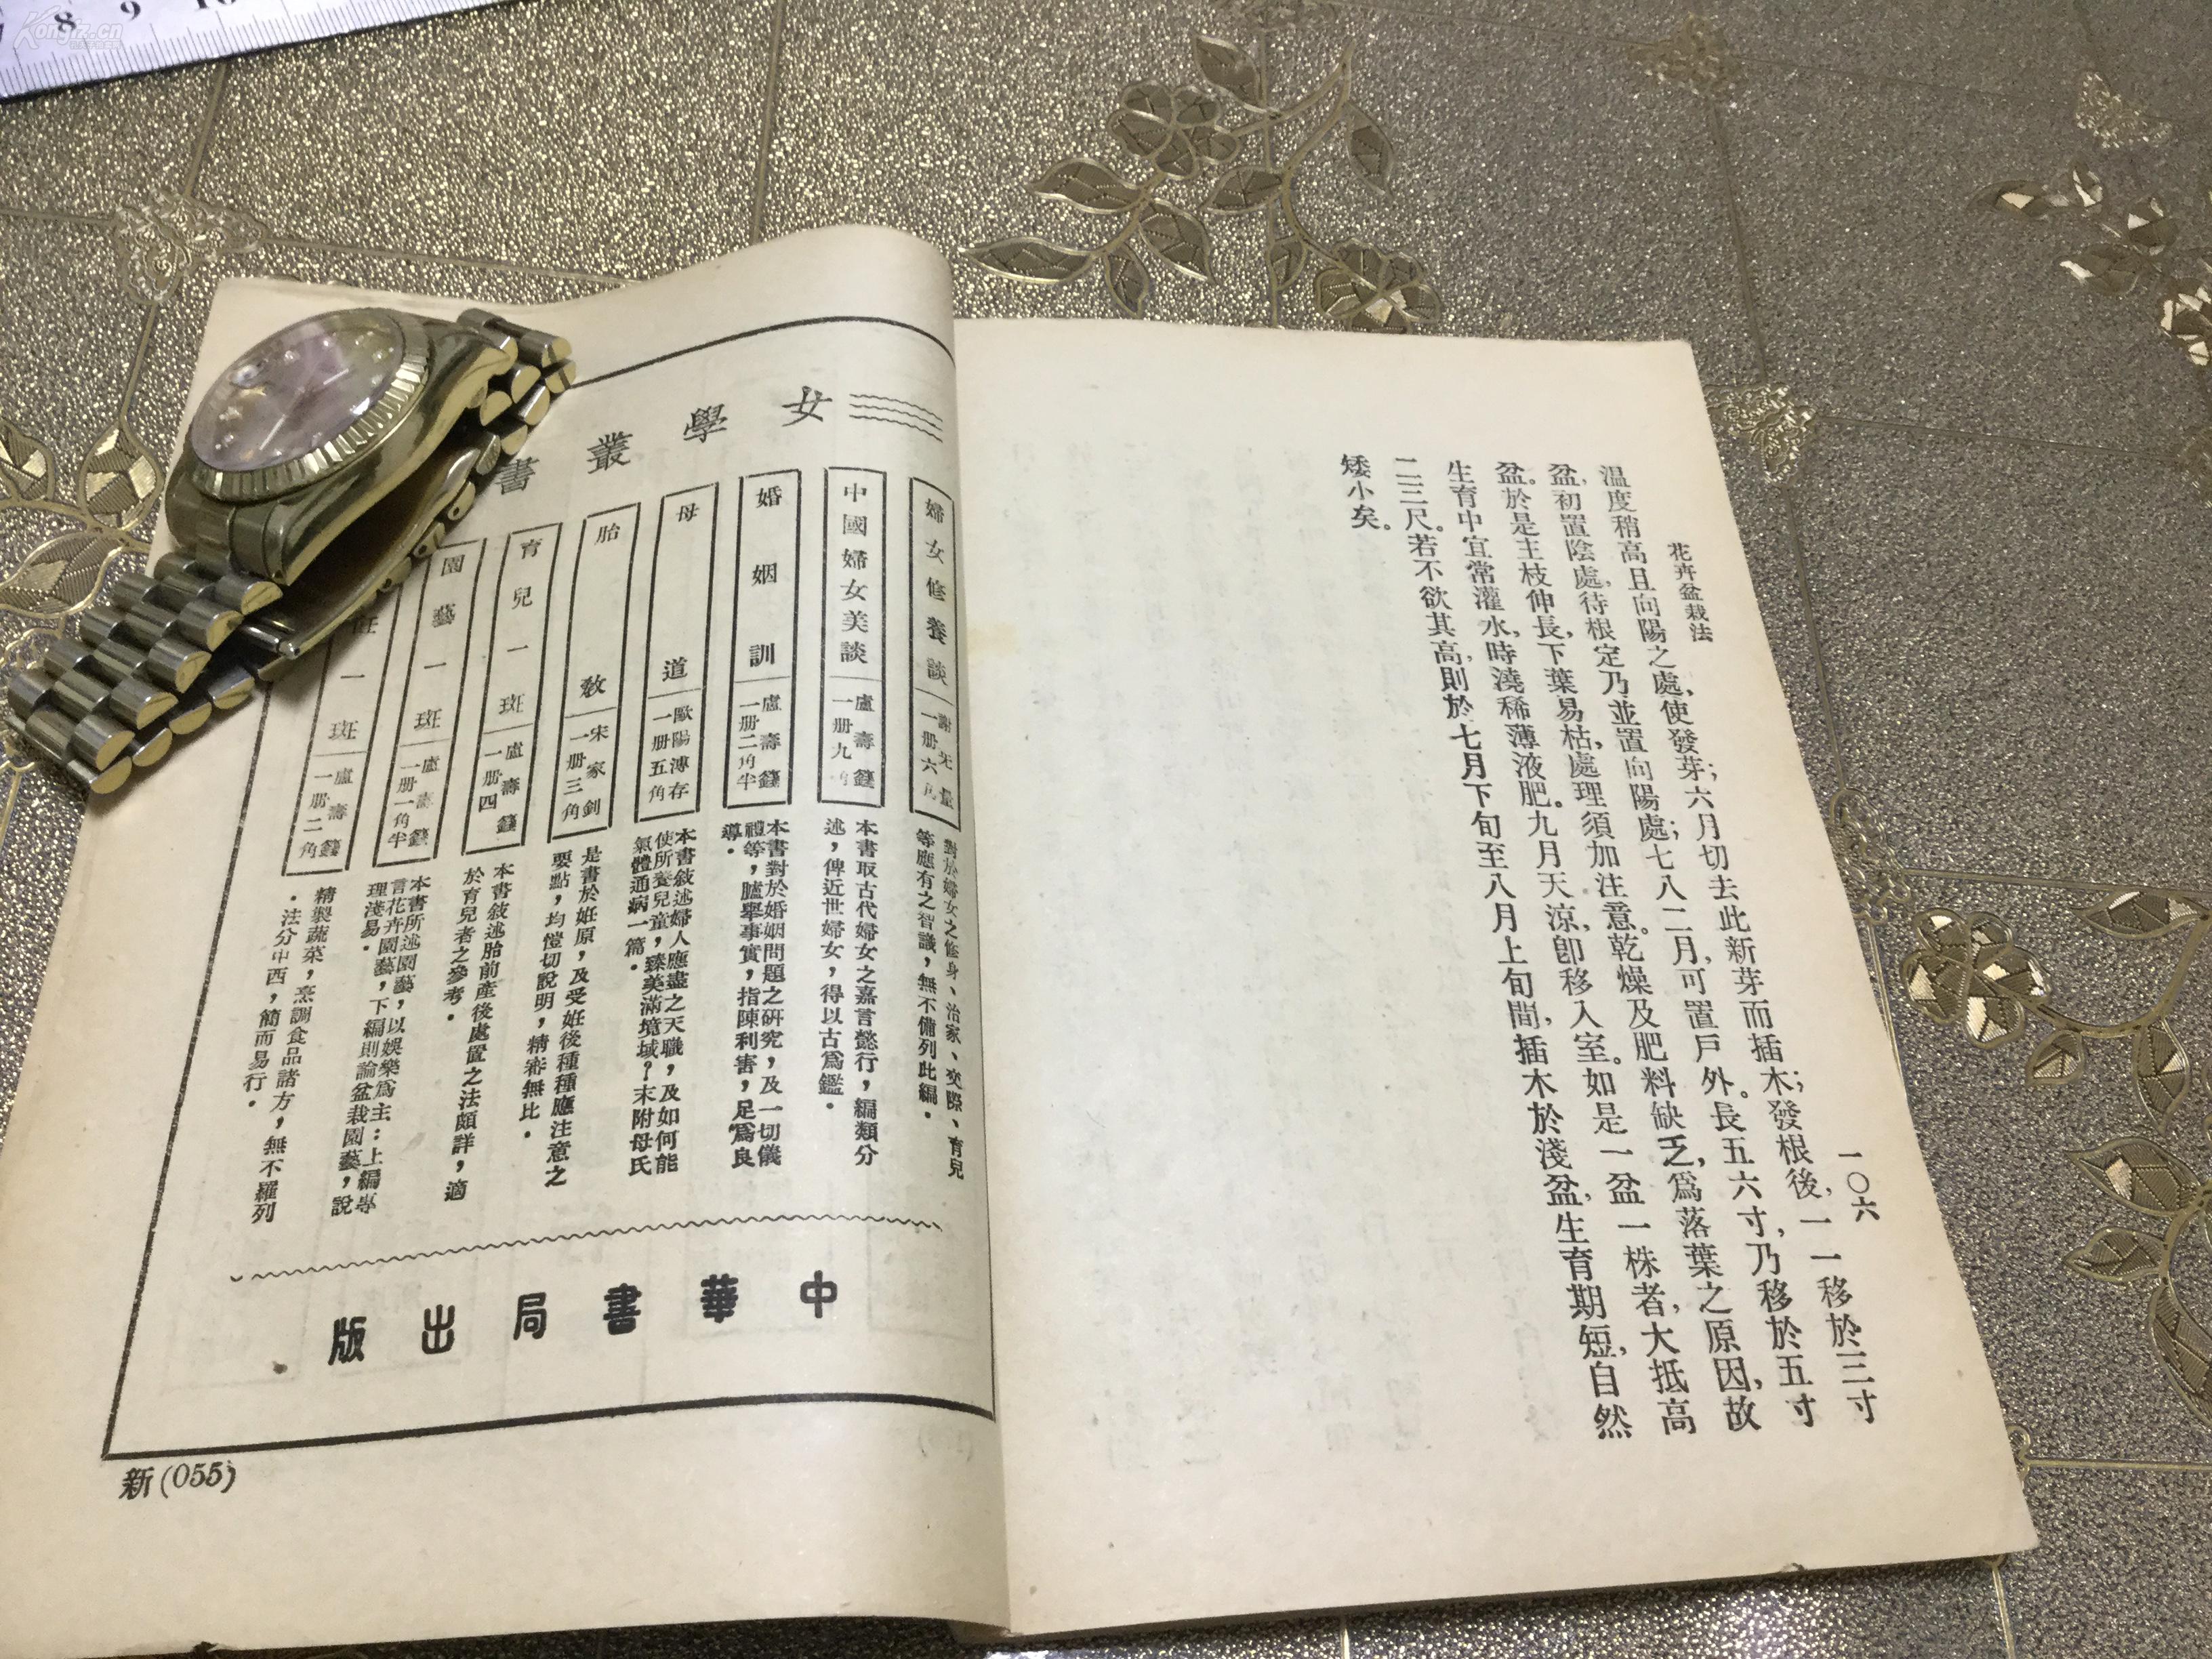 花卉盆栽法
一〇六
溫度稍高且向陽之處，使發芽；六月切去此新芽而插木；發根後，一一移於三寸
盆，初置陰處，待根定乃並置向陽處；七八二月，可置戶外。長五六寸，乃移於五寸
盆。於是主枝伸長，下葉易枯，處理須加注意。乾燥及肥料缺乏，爲落葉之原因，故
生育中宜常灌水，時澆稀薄液肥。九月天涼，卽移入室。如是一盆一株者，大抵高
二三尺。若不欲其高，則於七月下旬至八月上旬間，插木於淺盆，生育期短，自然
矮小矣。
女學叢書
婦女修養談
一册六角
對於婦女之修身、治家、交際、育兒
等應有之智識，無不備列此編．
中國婦女美談
盧壽籛
一册九角
本書取古代婦女之嘉言懿行，編類分
述，俾近世婦女，得以古爲鑑．
婚姻訓
盧壽籛
一册二角半
本書對於婚姻問題之研究，及一切儀
禮等，臚舉事實，指陳利害，足爲良
導．
母道
歐陽溥存
一册五角
本書敍述婦人應盡之天職，及如何能
使所養兒童，臻美滿境域，末附母氏
氣體通病一篇．
胎教
宋家釗
一册三角
是書於姙原，及受姙後種種應注意之
要點，均愷切說明，精審無比．
育兒一斑
盧壽籛
一册四
本書敍述胎前產後處置之法頗詳，適
於育兒者之參考．
園藝一斑
盧壽籛
一册一角半
本書所述園藝，以娛樂爲主：上編專
言花卉園藝，下編則論盆栽園藝，說
理淺易．
飪一斑
盧壽籛
一册二角
精製蔬菜，烹調食品諸方，無不羅列
．法分中西，簡而易行．
中華書局出版
新(055)
7 8 9 10
Kongfz.cn